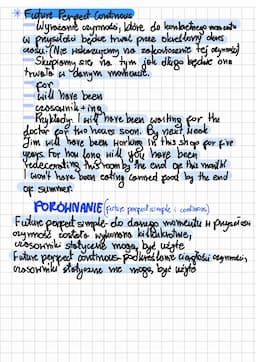 * Future Perfect Continous
Wyrażenie czynności, które do konkretnego momentu
w przyszłości będzie trwać przez określony okres
czasu. (Nie wskazujemy na zakończenie tej czynności)
Skupiamy się na tym jak długo będzie ona
trwała w danym momencie.
for
will have been
czasownik + ing
Przykłady: I will have been waiting for the
doctor for two hours soon. By next week
Jim will have been working in this shop for five
years. For how long will you have been
redecorating this room by the end of this month?
I won't have been eating canned food by the end
of summer.
PORÓWNANIE (future perfect simple i continous)
Future perfect simple - do danego momentu w przyszłości
czynność została wykonana kilkukrotnie,
czasowniki statyczne mogą być użyte
Future perfect continous - podkreślenie ciągłości czynności,
czasowniki statyczne nie mogą być użyte